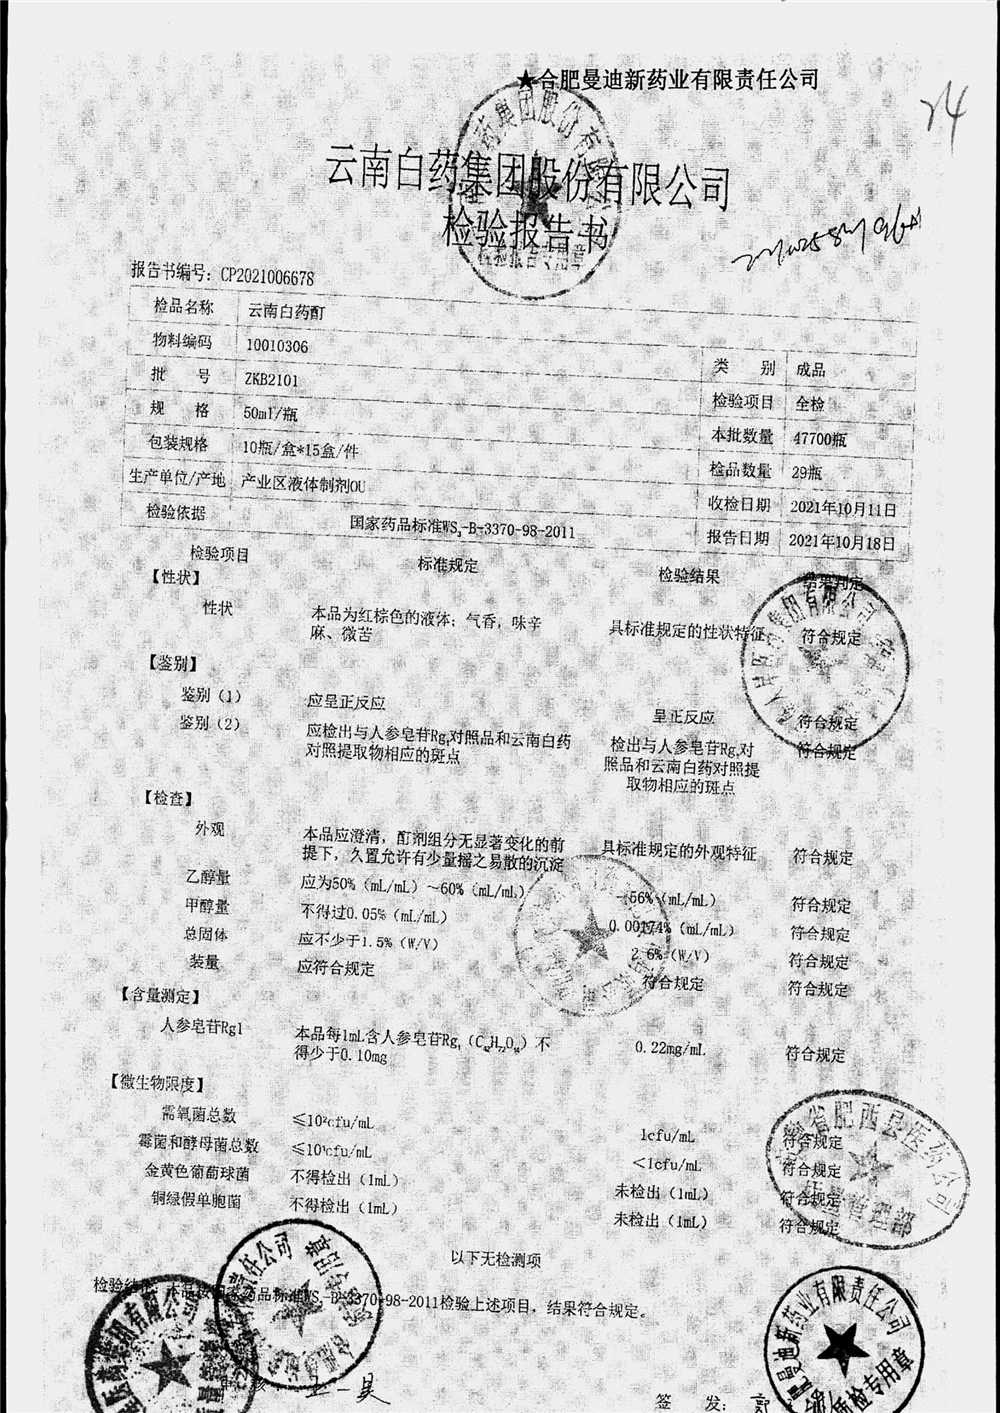 ★合肥曼迪新药业有限责任公司
24
云南白药集团股份有限公司
检验报告书
检验报告专用章
报告书编号: CP2021006678
检品名称 云南白药酊
物料编码 10010306 类 别 成品
批 号 ZKB2101 检验项目 全检
规 格 50ml/瓶 本批数量 47700瓶
包装规格 10瓶/盒*15盒/件 检品数量 29瓶
生产单位/产地 产业区液体制剂OU 收检日期 2021年10月11日
检验依据 国家药品标准WS3-B-3370-98-2011 报告日期 2021年10月18日
检验项目 标准规定 检验结果 结果判定
【性状】
性状 本品为红棕色的液体; 气香, 味辛 具标准规定的性状特征 符合规定
麻、微苦
【鉴别】
鉴别（1） 应呈正反应 呈正反应 符合规定
鉴别（2） 应检出与人参皂苷Rg1对照品和云南白药 检出与人参皂苷Rg1对 符合规定
对照提取物相应的斑点 照品和云南白药对照提
取物相应的斑点
【检查】
外观 本品应澄清, 酊剂组分无显著变化的前 具标准规定的外观特征 符合规定
提下, 久置允许有少量摇之易散的沉淀
乙醇量 应为50%（mL/mL）～60%（mL/mL） 56%（mL/mL） 符合规定
甲醇量 不得过0.05%（mL/mL） 0.00174%（mL/mL） 符合规定
总固体 应不少于1.5%（W/V） 2.6%（W/V） 符合规定
装量 应符合规定 符合规定 符合规定
【含量测定】
人参皂苷Rg1 本品每1mL含人参皂苷Rg1（C42H72O14）不 0.22mg/mL 符合规定
得少于0.10mg
【微生物限度】
需氧菌总数 ≤10²cfu/mL 1cfu/mL 符合规定
霉菌和酵母菌总数 ≤10¹cfu/mL <1cfu/mL 符合规定
金黄色葡萄球菌 不得检出（1mL） 未检出（1mL） 符合规定
铜绿假单胞菌 不得检出（1mL） 未检出（1mL） 符合规定
省肥西县医药公司
管理部
以下无检测项
本品按国家药品标准WS3-B-3370-98-2011检验上述项目, 结果符合规定。
责任公司
曼迪新药业有限责任公司
质检专用章
签 发: